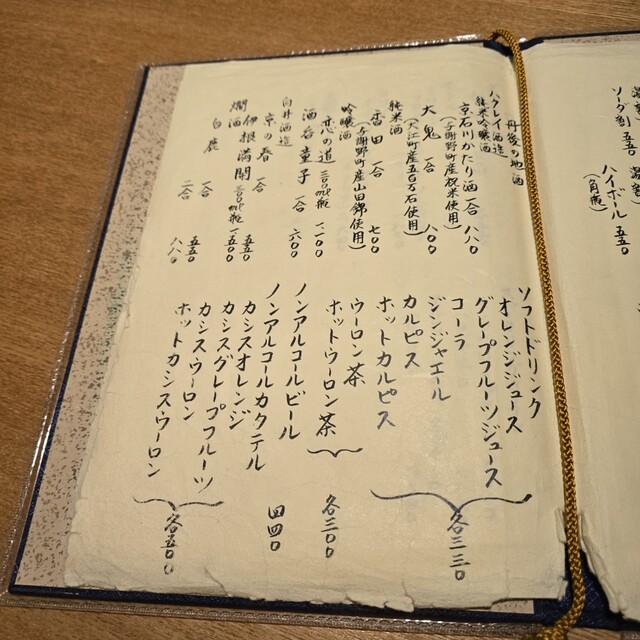 ソーダ割 五五〇
ハイボール 五五〇
(角瓶)
丹後の地酒
ハクレイ酒造
純米吟醸酒
京石川かたり酒 一合 八八〇
(与謝野町産祝米使用)
大鬼 一合 八〇〇
(大江町産五百万石使用)
純米酒
香田 一合 七〇〇
(与謝野町産山田錦使用)
吟醸酒
恋の道 三〇〇ml瓶 一、一〇〇
酒呑童子 一合 六〇〇
向井酒造
京の春 一合 五五〇
伊根満開 三〇〇ml瓶 一五〇〇
燗酒
白鹿 一合 五五〇
二合 八八〇
ソフトドリンク
オレンジジュース
グレープフルーツジュース
コーラ
ジンジャエール
カルピス
ホットカルピス
各三三〇
ウーロン茶
ホットウーロン茶
各三〇〇
ノンアルコールビール
ノンアルコールカクテル
四四〇
カシスオレンジ
カシスグレープフルーツ
カシスウーロン
ホットカシスウーロン
各五〇〇